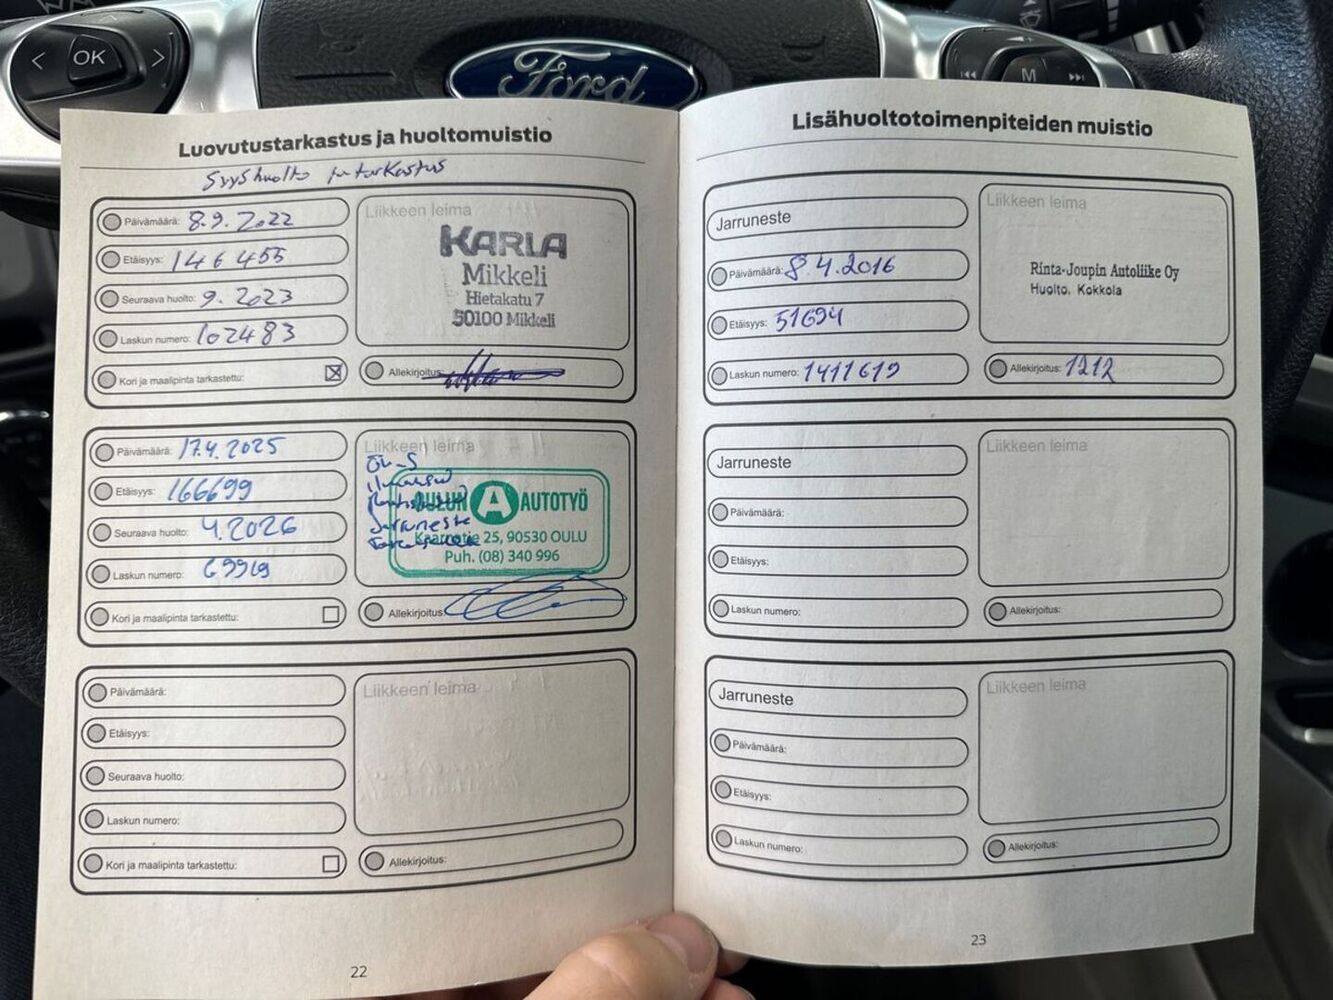 OK
Ford
M
Luovutustarkastus ja huoltomuistio
Syyshuolto ja tarkastus
Päivämäärä: 8.9.2022
Etäisyys: 146455
Seuraava huolto: 9.2023
Laskun numero: 102483
Kori ja maalipinta tarkastettu:
Liikkeen leima
KARLA
Mikkeli
Hietakatu 7
50100 Mikkeli
Allekirjoitus:
Päivämäärä: 17.4.2025
Etäisyys: 166699
Seuraava huolto: 4.2026
Laskun numero: 69969
Kori ja maalipinta tarkastettu:
Liikkeen leima
ÖL-S
Jarruneste
OULUN A AUTOTYÖ
Kaarnatie 25, 90530 OULU
Puh. (08) 340 996
Allekirjoitus:
Päivämäärä:
Etäisyys:
Seuraava huolto:
Laskun numero:
Kori ja maalipinta tarkastettu:
Liikkeen leima
Allekirjoitus:
22
Lisähuoltotoimenpiteiden muistio
Jarruneste
Päivämäärä: 8.4.2016
Etäisyys: 51694
Laskun numero: 1411619
Liikkeen leima
Rinta-Joupin Autoliike Oy
Huolto, Kokkola
Allekirjoitus: 1212
Jarruneste
Päivämäärä:
Etäisyys:
Laskun numero:
Liikkeen leima
Allekirjoitus:
Jarruneste
Päivämäärä:
Etäisyys:
Laskun numero:
Liikkeen leima
Allekirjoitus:
23